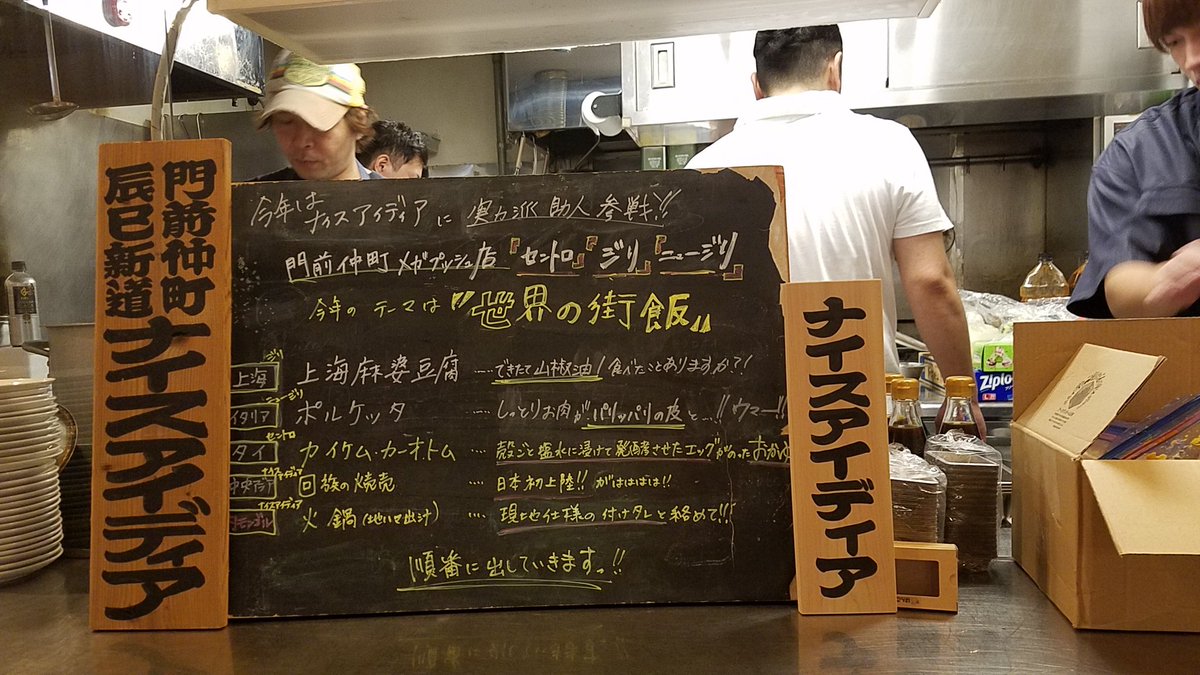 門前仲町
辰巳新道
ナイスアイディア
今年はナイスアイディアに 実力派助人参戦!!
門前仲町メガプッシュ店 『セントロ』『ジリ』『ニュージリ』
今年のテーマは "世界の街飯"
ジリ
上海 上海麻婆豆腐 ‥‥できたて山椒油!食べたことありますか?!
ニュージリ
イタリア ポルケッタ ‥‥しっとりお肉がパリッパリの皮と…!!ウマー!!
セントロ
タイ カイケム・カーオ・トム ‥‥殻ごと塩水に浸けて発酵させたエッグがのったおかゆ
ナイスアイディア
中央アジア 回族の焼売 ‥‥日本初上陸!! がはははは!!
ナイスアイディア
内モンゴル 火鍋 ‥‥現地仕様の付けタレと絡めて!!
順番に出していきますっ!!
ナイスアイディア
Ziploc